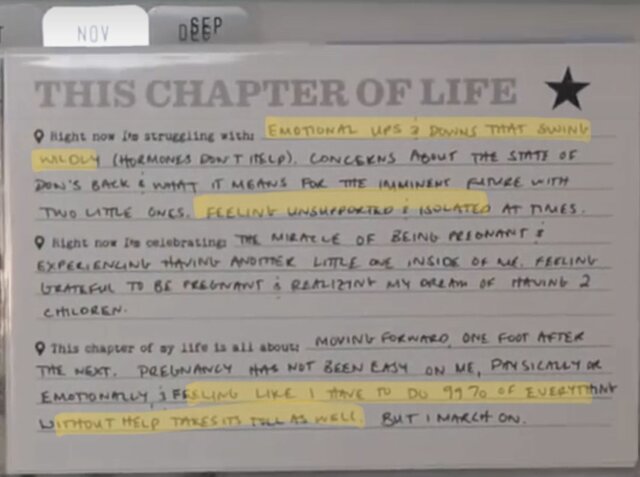 NOV
SEP
THIS CHAPTER OF LIFE
Right now I'm struggling with: EMOTIONAL UPS & DOWNS THAT SWING
WILDLY (HORMONES DON'T HELP). CONCERNS ABOUT THE STATE OF
DON'S BACK & WHAT IT MEANS FOR THE IMMINENT FUTURE WITH
TWO LITTLE ONES. FEELING UNSUPPORTED & ISOLATED AT TIMES.
Right now I'm celebrating: THE MIRACLE OF BEING PREGNANT &
EXPERIENCING HAVING ANOTHER LITTLE ONE INSIDE OF ME. FEELING
GRATEFUL TO BE PREGNANT & REALIZING MY DREAM OF HAVING 2
CHILDREN.
This chapter of my life is all about: MOVING FORWARD, ONE FOOT AFTER
THE NEXT. PREGNANCY HAS NOT BEEN EASY ON ME, PHYSICALLY OR
EMOTIONALLY, & FEELING LIKE I HAVE TO DO 99% OF EVERYTHING
WITHOUT HELP TAKES ITS TOLL AS WELL. BUT I MARCH ON.